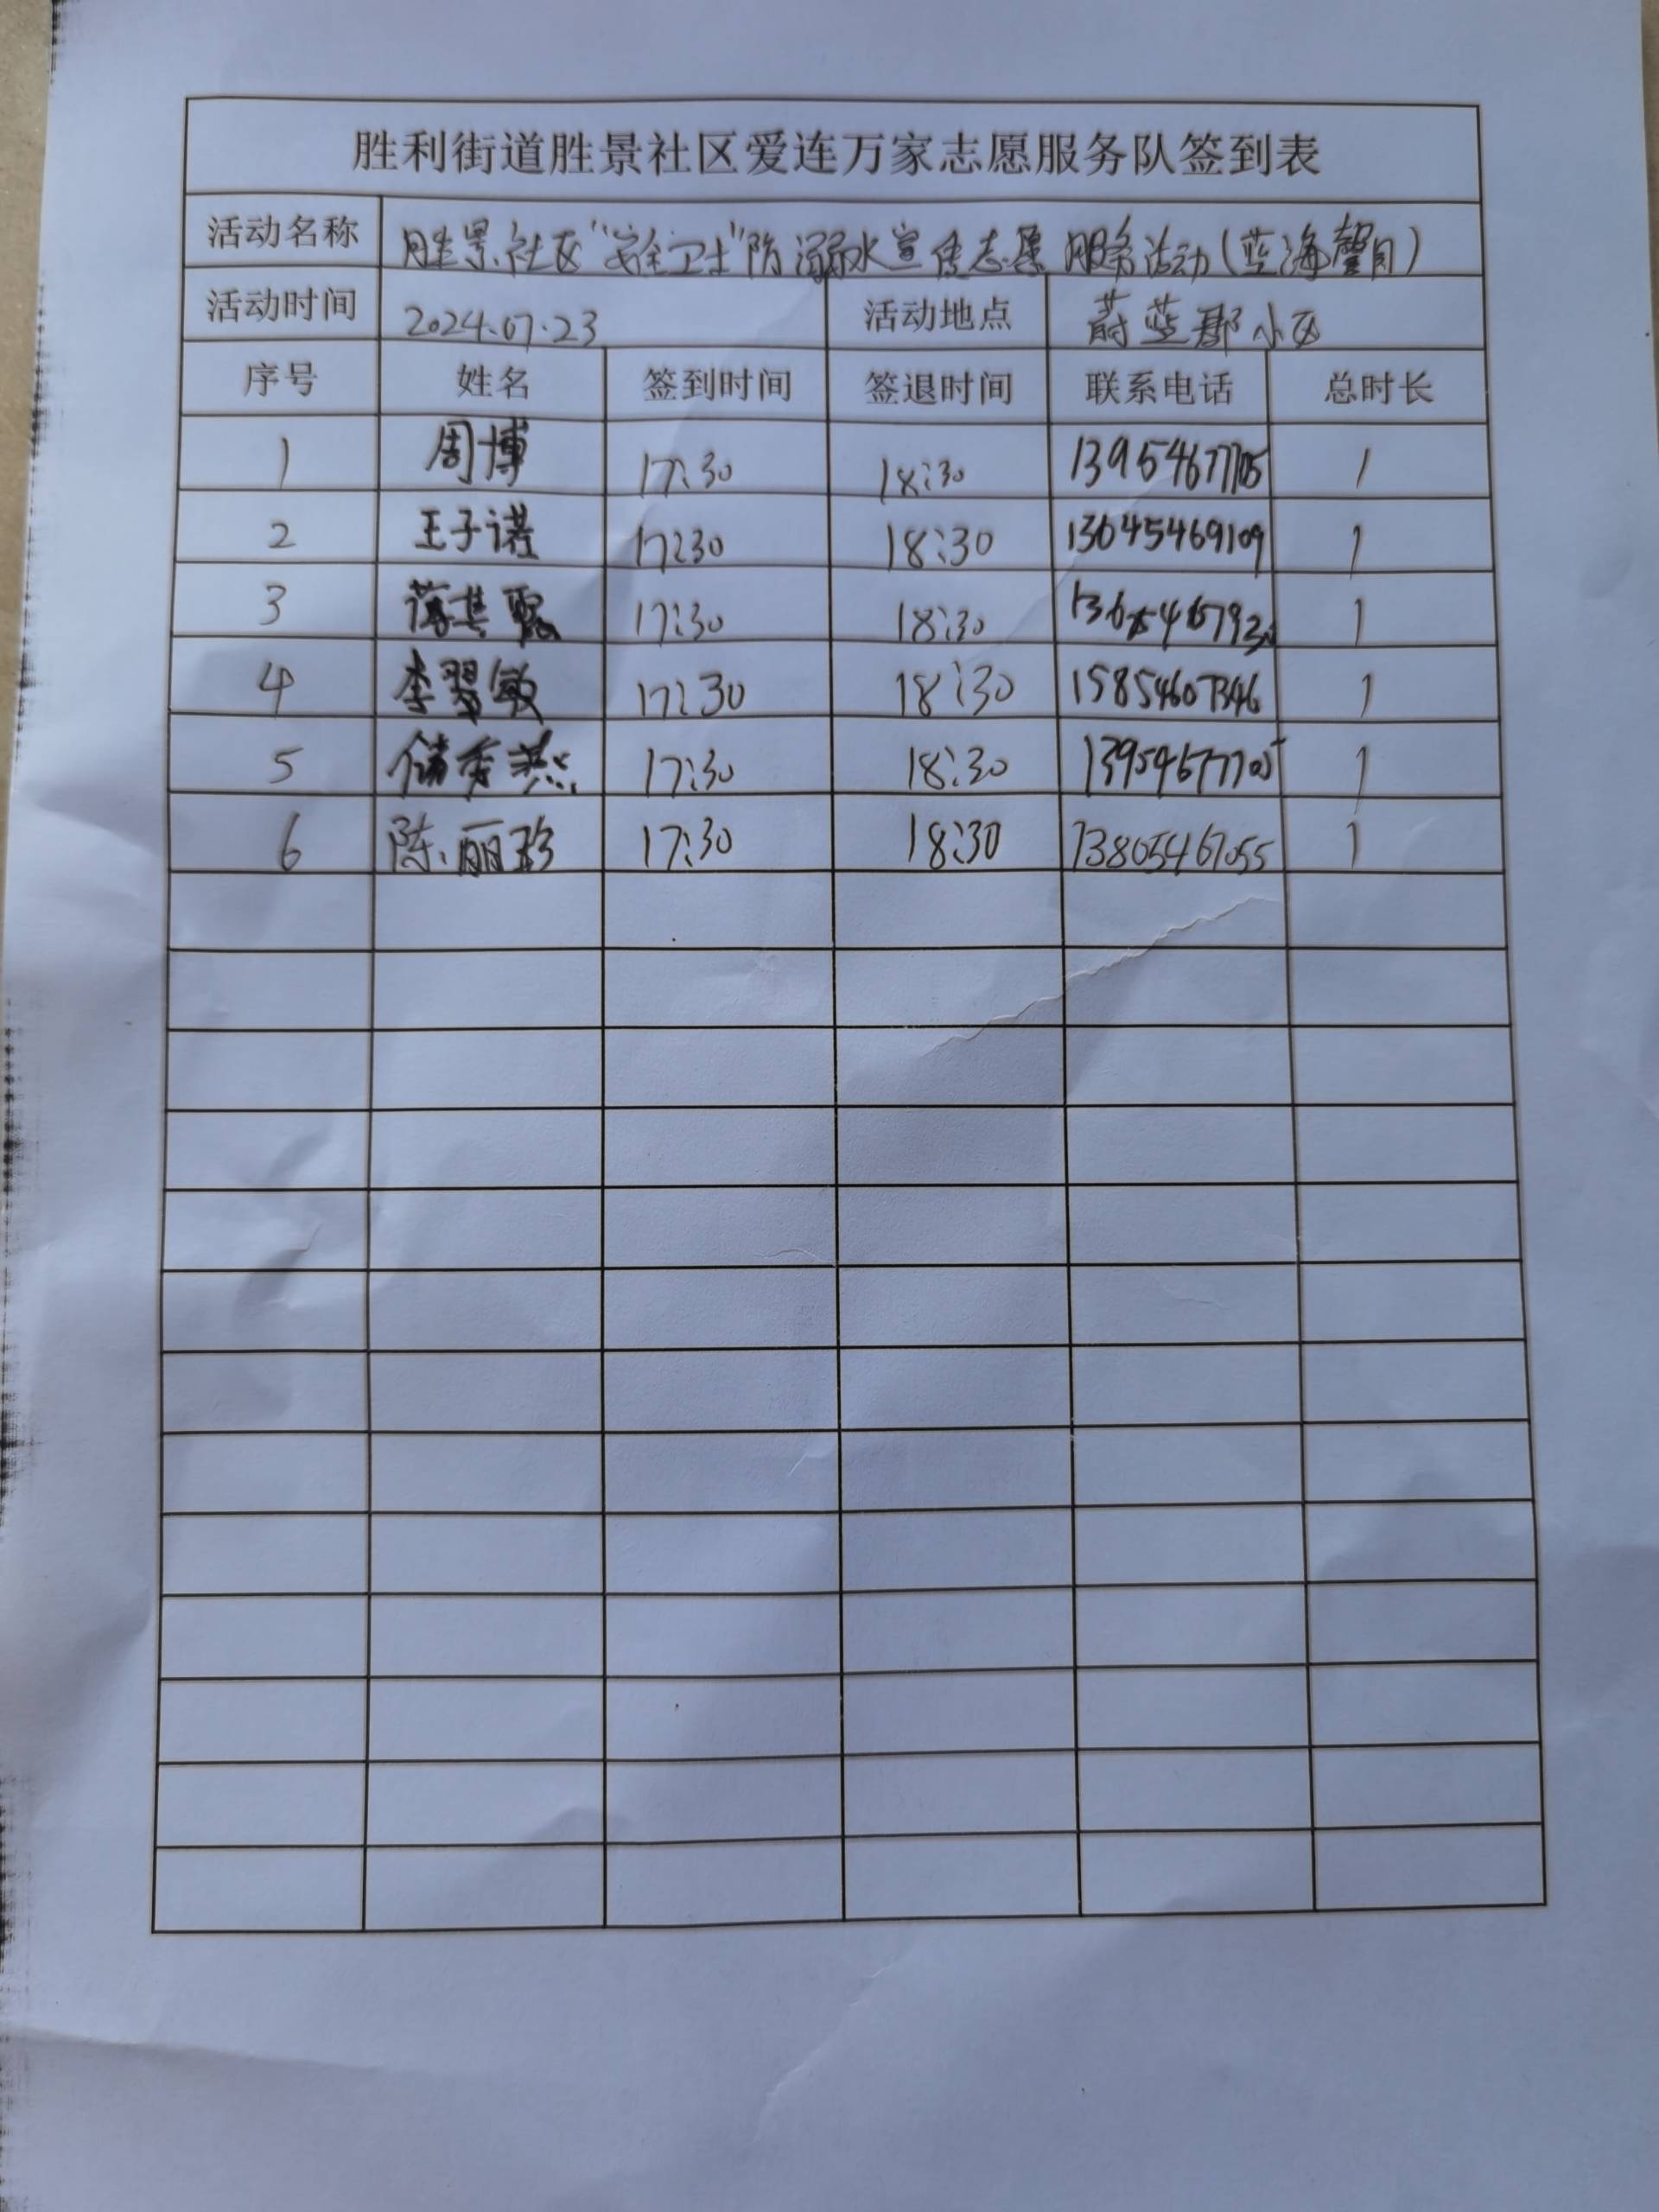 胜利街道胜景社区爱连万家志愿服务队签到表
活动名称 胜景社区"安全卫士"防溺水宣传志愿服务活动(蓝海馨月)
活动时间 2024.07.23 活动地点 蔚蓝郡小区
序号 姓名 签到时间 签退时间 联系电话 总时长
1 周博 17:30 18:30 13954677705 1
2 王子诺 17:30 18:30 13645469109 1
3 17:30 18:30 1
4 李翠敏 17:30 18:30 15854607346 1
5 储秀燕 17:30 18:30 13954677705 1
6 陈丽珍 17:30 18:30 13805467055 1